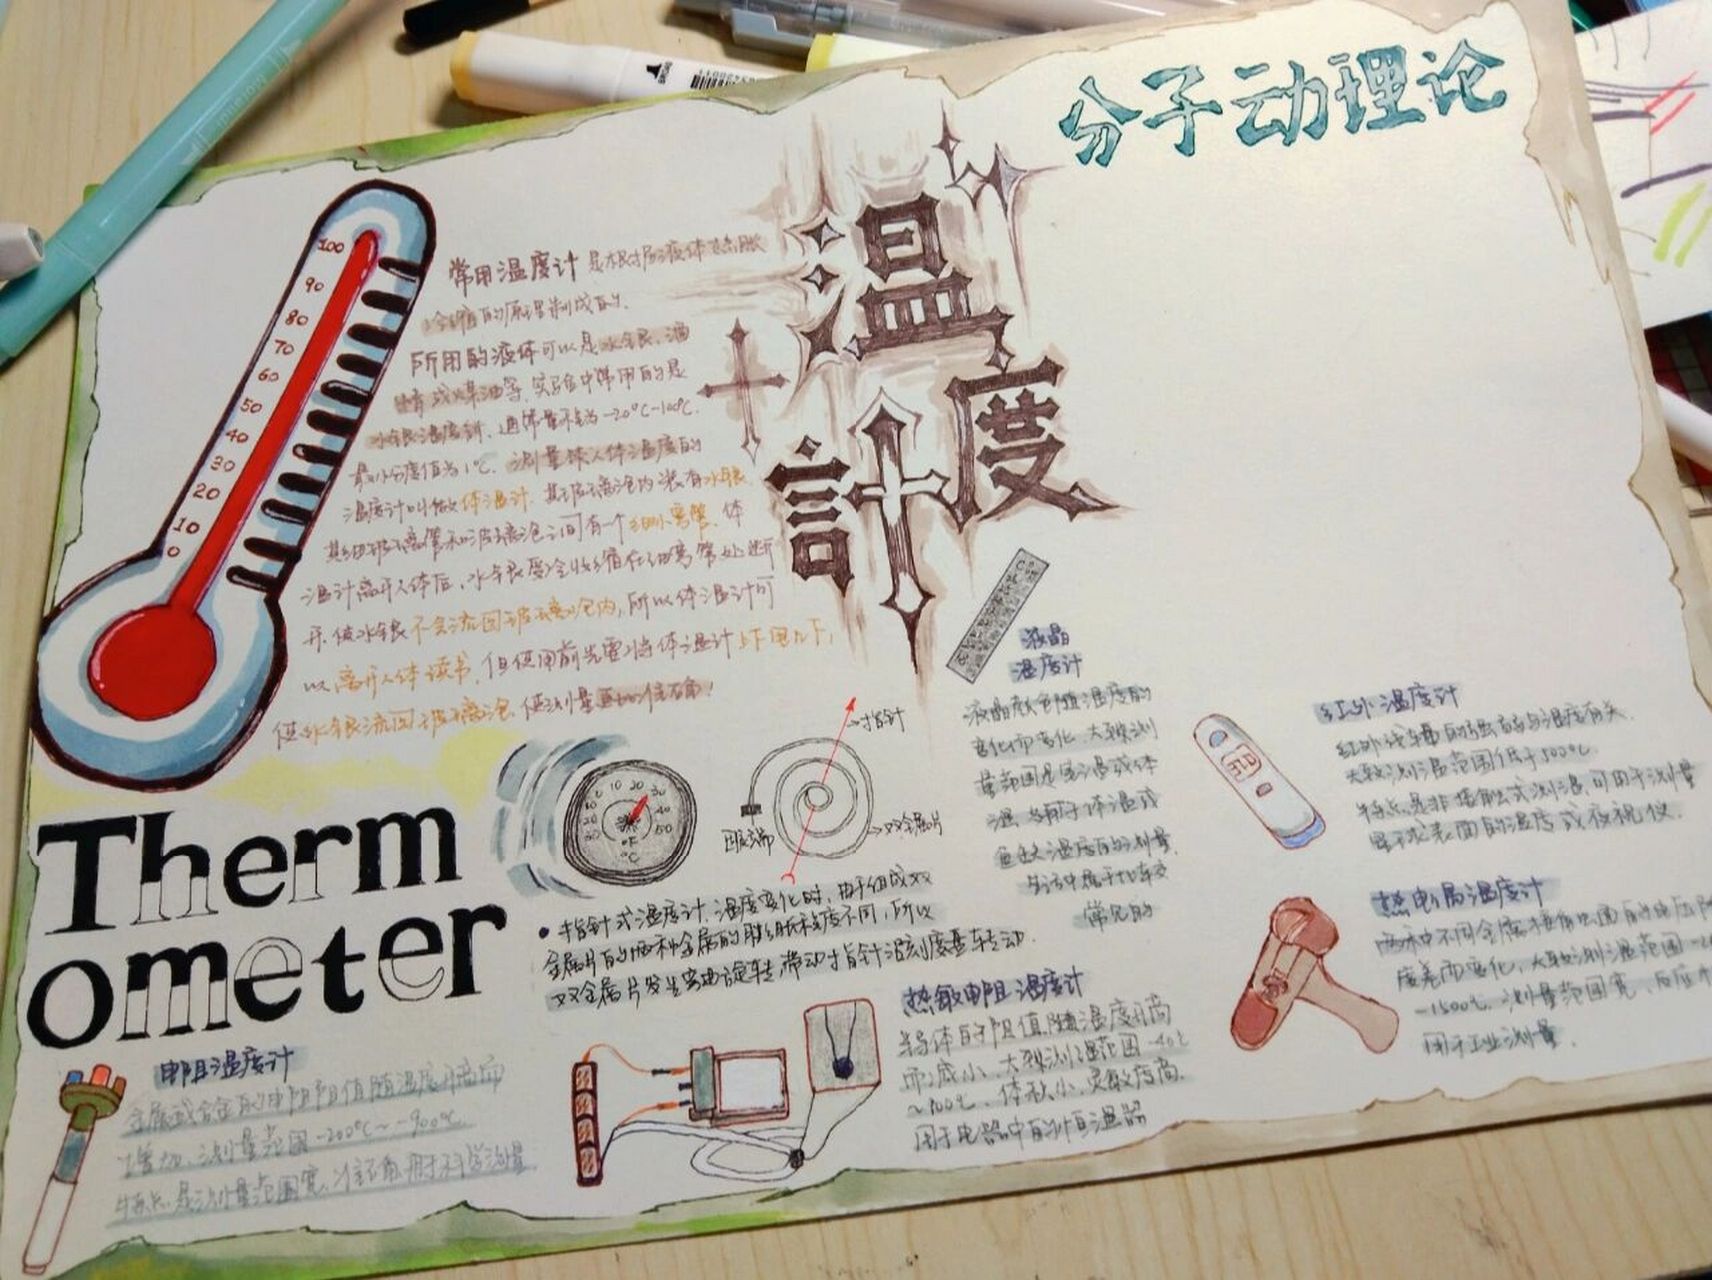 分子动理论
温
度
計
100
90
80
70
60
50
40
30
20
10
0
常用温度计 是根据液体热胀
冷缩的原理制成的.
所用的液体可以是水银、酒
精或煤油等.实验中常用的是
水银温度计.通常量程为-20℃-100℃.
最小分度值为1℃.测量人体温度的
温度计叫做体温计.其玻璃泡内装有水银.
其细玻璃管和玻璃泡之间有一个细小弯管.体
温计离开人体后,水银受冷收缩在细弯管处断
开.使水银不会流回玻璃泡内,所以体温计可
以离开人体读书.但使用前先要将体温计上下甩几下,
使水银流回玻璃泡.使测量更加准确!
Therm
ometer
指针
固定端
双金属片
°F
°C
•指针式温度计.温度变化时,由于组成双
金属片的两种金属的膨胀程度不同,所以
双金属片发生弯曲旋转,带动指针沿刻度盘转动.
液晶
温度计
液晶颜色随温度的
变化而变化.大致测
量范围是室温或体
温
温度的测量.
生活中
常见的
红外温度计
红外线辐射的强弱与温度有关.
大致测温范围低于500℃.
特点是非接触式测温.可用于测量
星球表面的温度或夜视仪.
热电偶温度计
两种不同金属接触
度差而变化,大致测温范围
-1500℃.测量范围宽、反应
用于工业测量.
热敏电阻温度计
半导体的阻值随温度升高
而减小、大致测温范围-40℃
~100℃、体积小、灵敏度高.
用于电器中的恒温器
电阻温度计
金属或合金的电阻阻值随温度升高而
增加.测量范围-200℃~-900℃.
特点是测量范围宽、准确用于科学测量